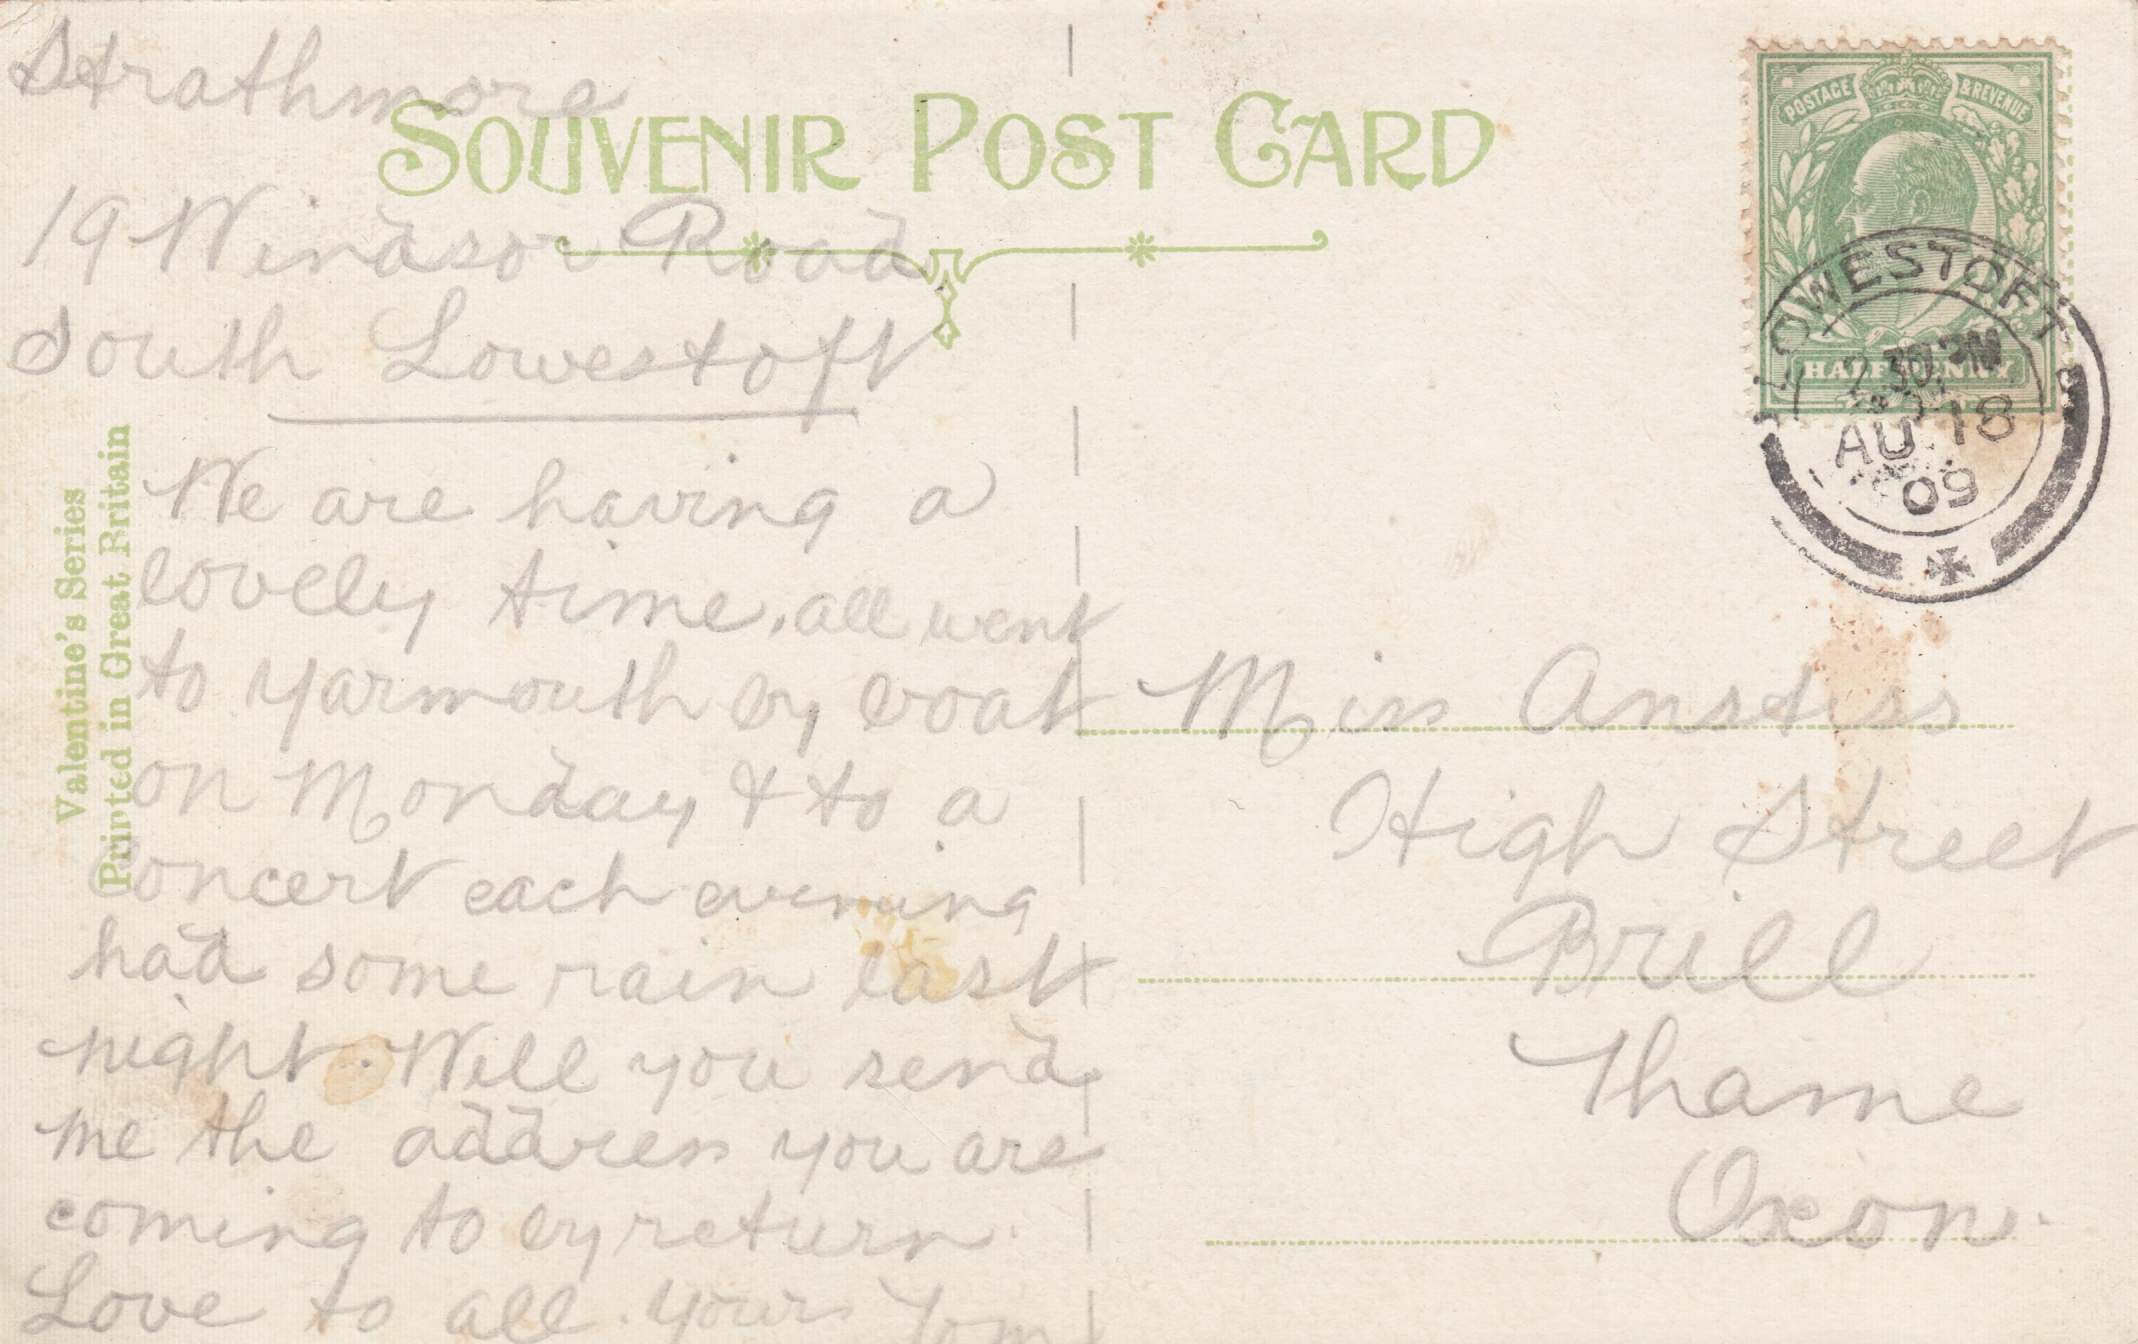 Strathmore
SOUVENIR POST CARD
19 Windsor Road
South Lowestoft
We are having a
lovely time, all went
to Yarmouth by boat
on Monday & to a
Concert each evening
had some rain last
night. Will you send
me the address you are
coming to by return.
Love to all. Yours Tom
Valentine's Series
Printed in Great Britain
POSTAGE & REVENUE
HALFPENNY
LOWESTOFT
2.30 PM
AU 18
09
Miss Anstiss
High Street
Brill
Thame
Oxon.